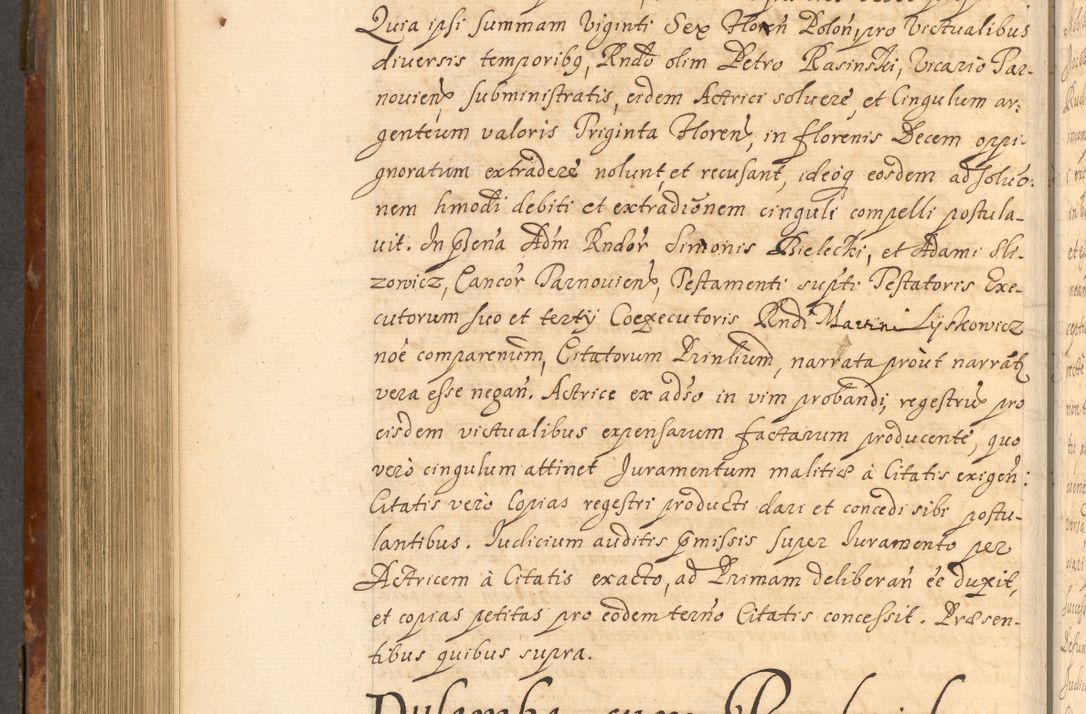 Quia ipsi summam Viginti Sex Floreń Poloń, pro Victualibus
diversis temporibꝯ, Rndo olim Petro Rasinski, Vicario Tar-
novien subministratis, eidem Actrici solvere, et Cingulum ar-
genteum valoris Triginta Floren, in florenis Decem oppi-
gnoratum extradere nolunt et recusant, ideoq eosdem ad soluo-
nem hmodi debiti et extradionem cinguli compelli postula-
vit. In pñna Adm Rndor Simonis Bielecki, et Adami Sli-
zowicz, Cancor Tarnovien, Testamenti supti Testatoris Exe-
cutorum suo et tertij Coexecutoris Rndi Martini Lyskowicz
noe comparenium, Citatorum Prinlium, narrata prout narrat
vera esse negań. Actrice ex adso in vim probandi, regestru pro
eisdem victualibus expensarum factarum producente, quo
vero cingulum attinet Juramentum malitiæ à Citatis exigeń:
Citatis vero Copias regestri producti dari et concedi sibi postu-
lantibus. Judicium auditis pmissis super Juramento per
Actricem à Citatis exacto, ad Primam deliberań ee duxit,
et copias petitas pro eodem terno Citatis concessit. Præsen-
tibus quibus supra.
cum